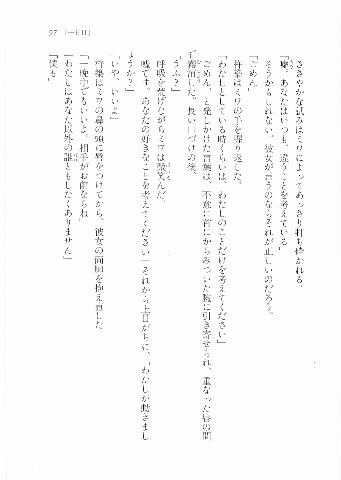 97 「一日目」
ささやかな試みはミワによってあっさり打ち砕かれる。
「嘘。あなたはいつも、違うことを考えている」
そうかもしれない。彼女が言うのならそれが正しいのだろう。
「ごめん」
杵築はミワの手を握り返した。
「わたしとしている時くらいは、わたしのことだけを考えてください」
ごめん、と発しかけた言葉は、不意に首にからみついた腕に引き寄せられ、重なった唇の間
で霧消した。長い口づけの後、
「うふ？」
呼吸を荒げながらミワは微笑んだ。
「嘘です。あなたの好きなことを考えてください」それから上目がちに、「わたしが動きまし
ょうか？」
「いや、いいよ」
杵築はミワの鼻の頭に唇をつけてから、彼女の両脚を抱え直した。
「一晩中でもいいよ。相手がお前ならね」
「わたしはあなた以外の誰ともしたくありません」
「僕も」